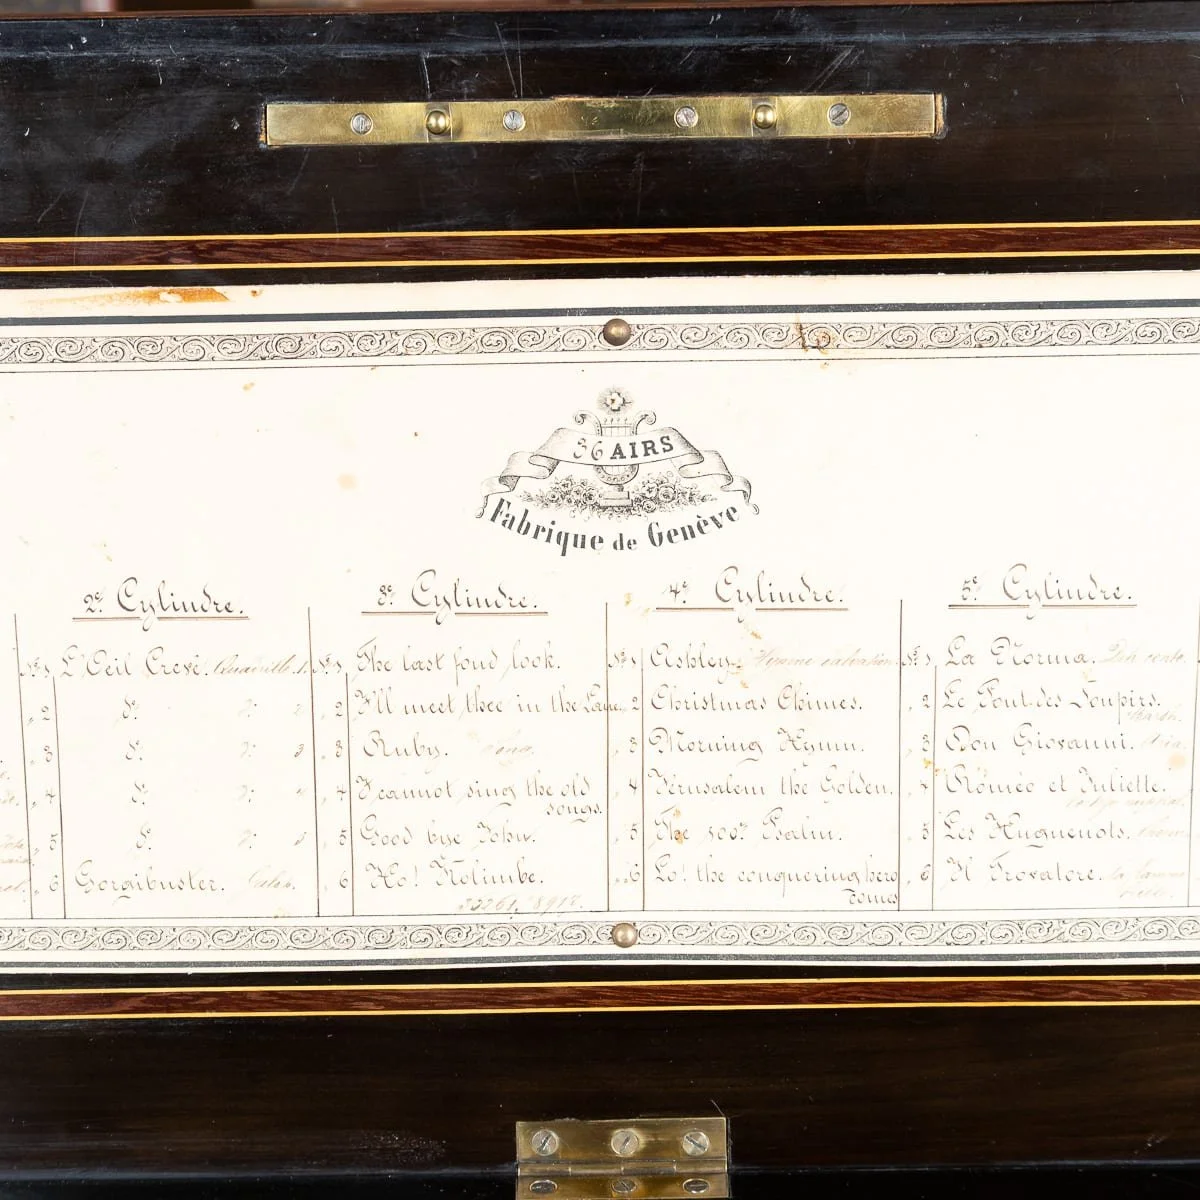 36 AIRS
Fabrique de Genève
2e Cylindre.
No 1 L'Oeil Crevé. Quadrille 1.
" 2 do do 2
" 3 do do 3
" 4 do do
" 5 do do 5
" 6 Gorgibuster. Galop.
3e Cylindre.
No 1 The last fond look.
" 2 I'll meet thee in the Lane.
" 3 Ruby. Song.
" 4 I cannot sing the old
songs.
" 5 Good bye John.
" 6 Ho! Kolimbe.
8918.
4e Cylindre.
No 1 Ashley. Hymne Salvation.
" 2 Christmas Chimes.
" 3 Morning Hymn.
" 4 Jerusalem the Golden.
" 5 The 100th Psalm.
" 6 Lo! the conquering hero
comes
5e Cylindre.
No 1 La Norma.
" 2 Le Pont des Soupirs.
March.
" 3 Don Giovanni. Aria.
" 4 Roméo et Juliette.
" 5 Les Huguenots.
" 6 Il Trovatore.